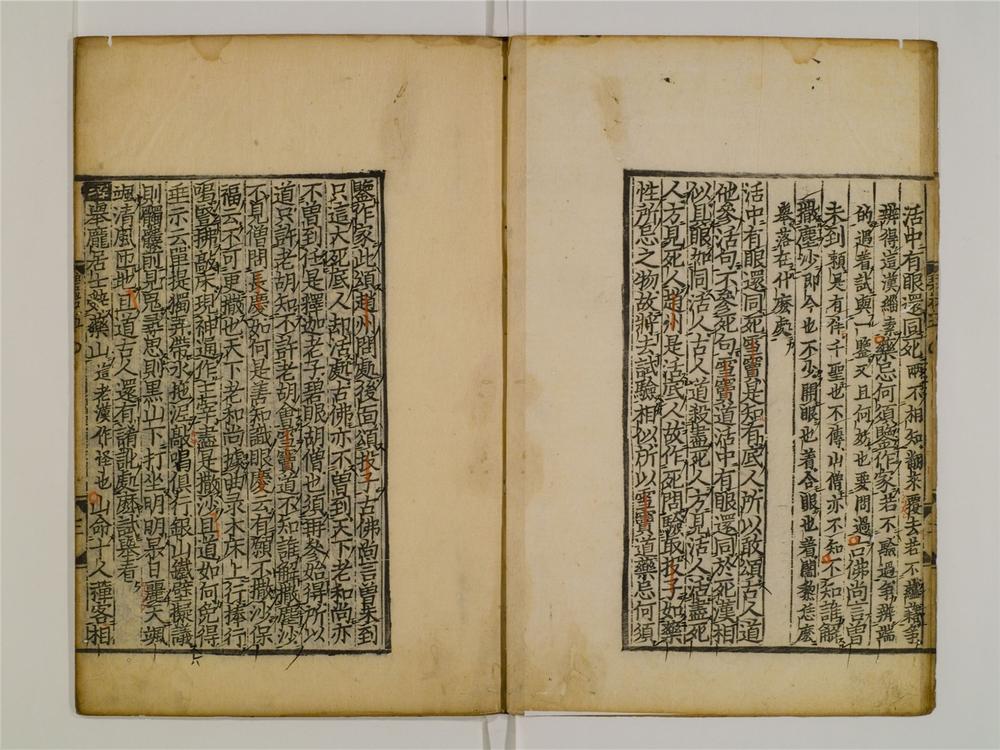 活中有眼還同死兩不相知翻來覆去若不蘊藉爭
辨得這漢緇素藥忌何須鑒作家若不驗過爭辨端
的遇着試與一鑒又且何妨也要問過古佛尚言曾
未到賴是有伴千聖也不傳山僧亦不知不知誰解
撒塵沙即今也不少開眼也着合眼也着闍黎恁麽
舉落在什麽處
活中有眼還同死雪竇是知有底人所以敢頌古人道
他參活句不參死句雪竇道活中有眼還同於死漢相
似具眼如同活人古人道殺盡死人方見活人活盡死
人方見死人趙州是活底人故作死問驗取投子如藥
性所忌之物故將去試驗相似所以雪竇道藥忌何須
鑒作家此頌趙州問處後面頌投子古佛尚言曾未到
只這大死底人却活處古佛亦不曾到天下老和尚亦
不曾到任是釋迦老子碧眼胡僧也須再參始得所以
道只許老胡知不許老胡會雪竇道不知誰解撒塵沙
不見僧問長慶如何是善知識眼慶云有願不撒沙保
福云不可更撒也天下老和尚據曲彔木床上行棒行
喝竪拂敲床現神通作主宰盡是撒沙且道如何免得
垂示云單提獨弄帶水拖泥敲唱俱行銀山鐵壁擬議
則髑髏前見鬼尋思則黑山下打坐明明杲日麗天颯
颯清風匝地且道古人還有誵訛處麽試舉看
舉龐居士辭藥山這老漢作怪也山命十人禪客相